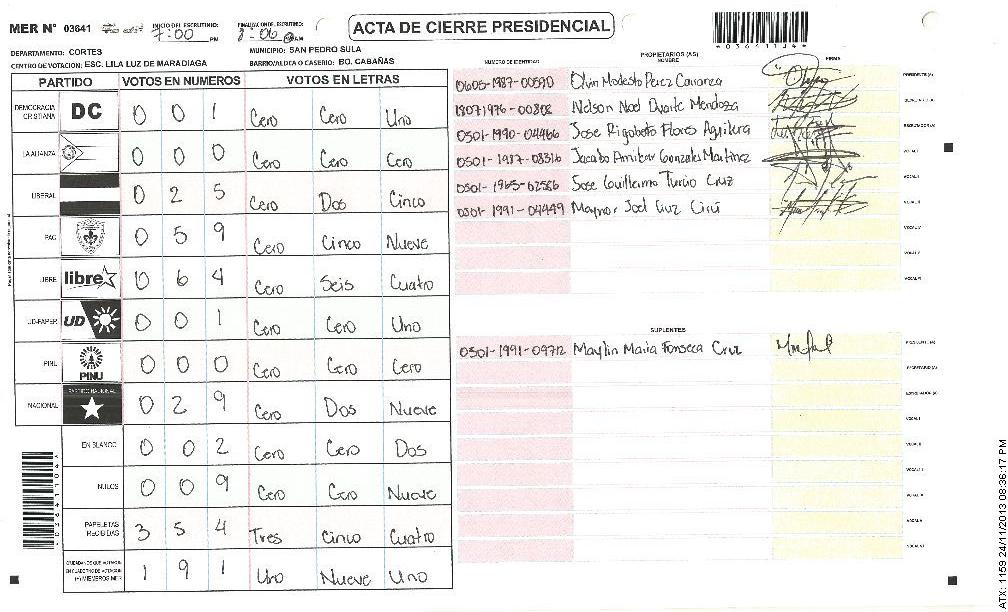 MER N° 03641
INICIO DEL ESCRUTINIO: 7:00 PM
FINALIZACION DEL ESCRUTINIO: 8:06 AM
ACTA DE CIERRE PRESIDENCIAL
*03641104*
DEPARTAMENTO: CORTES
MUNICIPIO: SAN PEDRO SULA
CENTRO DE VOTACION: ESC. LILA LUZ DE MARADIAGA
BARRIO/ALDEA O CASERIO: BO. CABAÑAS
PARTIDO VOTOS EN NUMEROS VOTOS EN LETRAS
DEMOCRACIA CRISTIANA DC 0 0 1 Cero Cero Uno
LA ALIANZA 0 0 0 Cero Cero Cero
LIBERAL 0 2 5 Cero Dos Cinco
PAC 0 5 9 Cero Cinco Nueve
LIBRE libre 0 6 4 Cero Seis Cuatro
UD-FAPER UD 0 0 1 Cero Cero Uno
PINU PINU 0 0 0 Cero Cero Cero
NACIONAL PARTIDO NACIONAL 0 2 9 Cero Dos Nueve
EN BLANCO 0 0 2 Cero Cero Dos
NULOS 0 0 9 Cero Cero Nueve
PAPELETAS RECIBIDAS 3 5 4 Tres Cinco Cuatro
CIUDADANOS QUE VOTARON EN CUADERNO DE VOTACION (+) MIEMBROS MER 1 9 1 Uno Nueve Uno
PROPIETARIOS (AS)
NUMERO DE IDENTIDAD NOMBRE FIRMA
0605-1987-00590 Olvin Modesto Perez Carranza PRESIDENTE(A)
1807-1976-00808 Nelson Noel Duarte Mendoza SECRETARIO(A)
0501-1990-04466 Jose Rigoberto Flores Aguilera ESCRUTADOR(A)
0501-1987-08316 Jacobo Amilcar Gonzales Martinez VOCAL I
0501-1965-02586 Jose Guillermo Turcio Cruz VOCAL II
0501-1991-04449 Maynor Joel Cruz VOCAL III
VOCAL IV
VOCAL V
VOCAL VI
SUPLENTES
0501-1991-09712 Maylin Maria Fonseca Cruz PRESIDENTE(A)
SECRETARIO(A)
ESCRUTADOR(A)
VOCAL I
VOCAL II
VOCAL III
VOCAL IV
VOCAL V
VOCAL VI
ATX: 1159 24/11/2013 08:36:17 PM